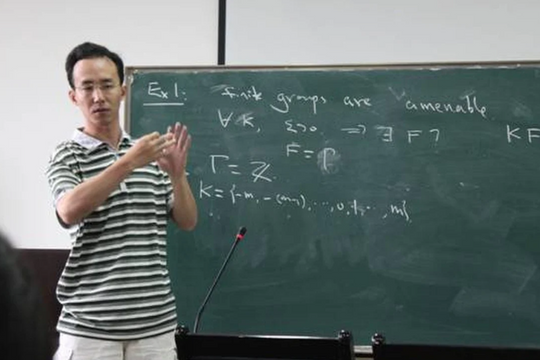 Ex1: finite groups are amenable.
∀ K, ε>0 ⇒ ∃ F? KF
F = Γ
Γ = ℤ.
K = {-m, -(m-1), ..., 0, 1, ..., m}